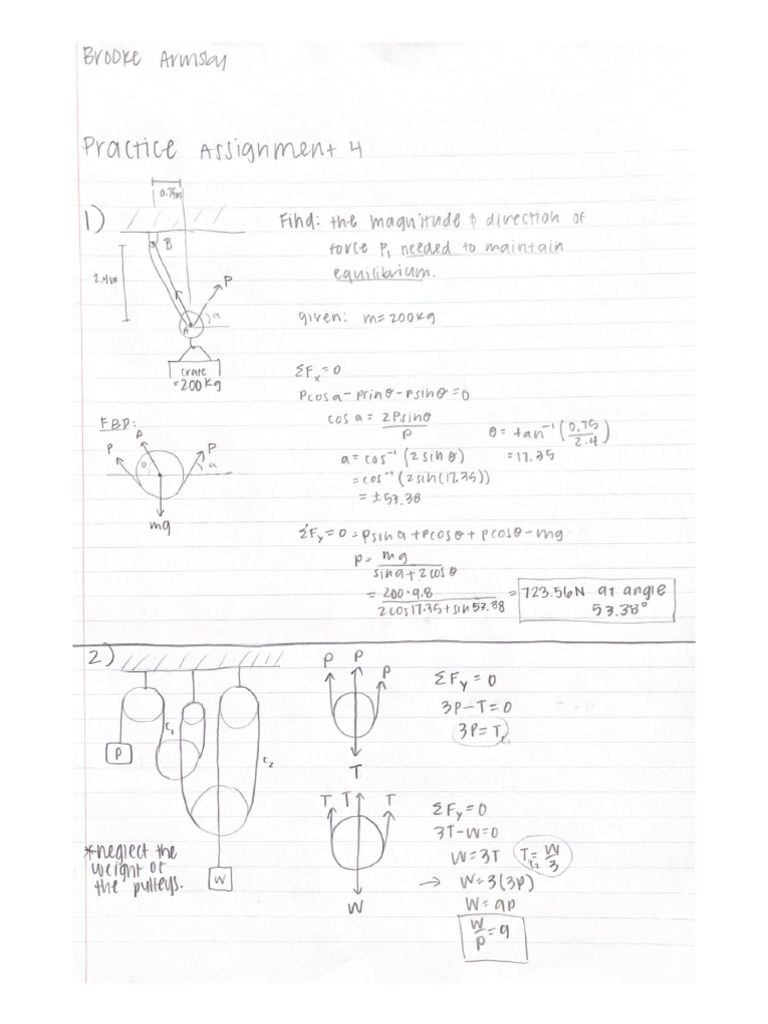 Brooke Armsby
Practice Assignment 4
1)
0.75m
B
2.4m
P
a
A
crate
=200kg
Find: the magnitude & direction of
force P, needed to maintain
equilibrium.
given: m=200kg
FBD:
P
P
P
θ
a
mg
ΣFx=0
Pcosa-Psinθ-Psinθ=0
cosa= 2Psinθ/P
a=cos⁻¹(2sinθ)
=cos⁻¹(2sin(17.35))
=±53.38
θ=tan⁻¹(0.75/2.4)
=17.35
ΣFy=0=Psina+Pcosθ+Pcosθ-mg
P= mg/sina+2cosθ
= 200·9.8/2cos17.35+sin53.38
=723.56N at angle
53.38°
2)
P
C1
C2
W
*neglect the
weight of
the pulleys.
P P P
T
ΣFy=0
3P-T=0
3P=T
T T T
W
ΣFy=0
3T-W=0
W=3T
T= W/3
→ W=3(3P)
W=9P
W/P=9